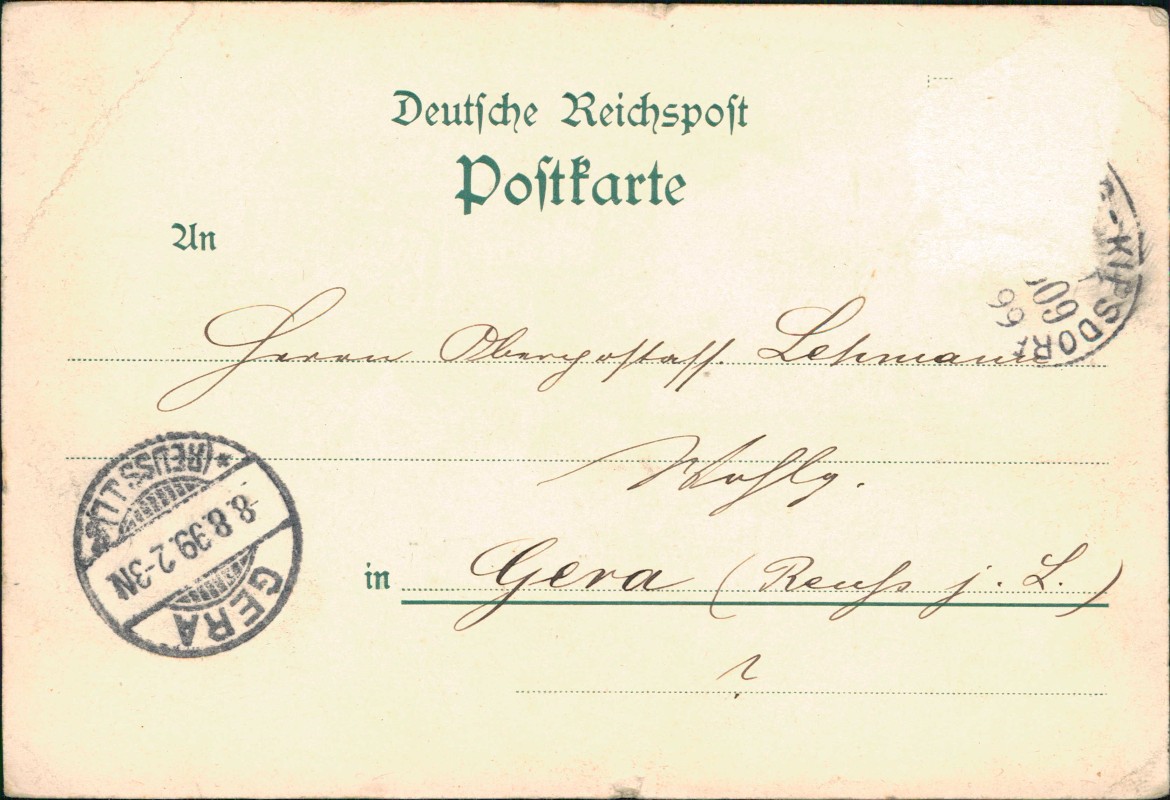 Deutsche Reichspost
Postkarte
An
Herrn Oberpostass. Lehmann
Wohlg.
in Gera (Reuss j. L.)
?
-KIPSDORF
99
GERA
8.8.99.2-3N
(REUSS J.L.) *